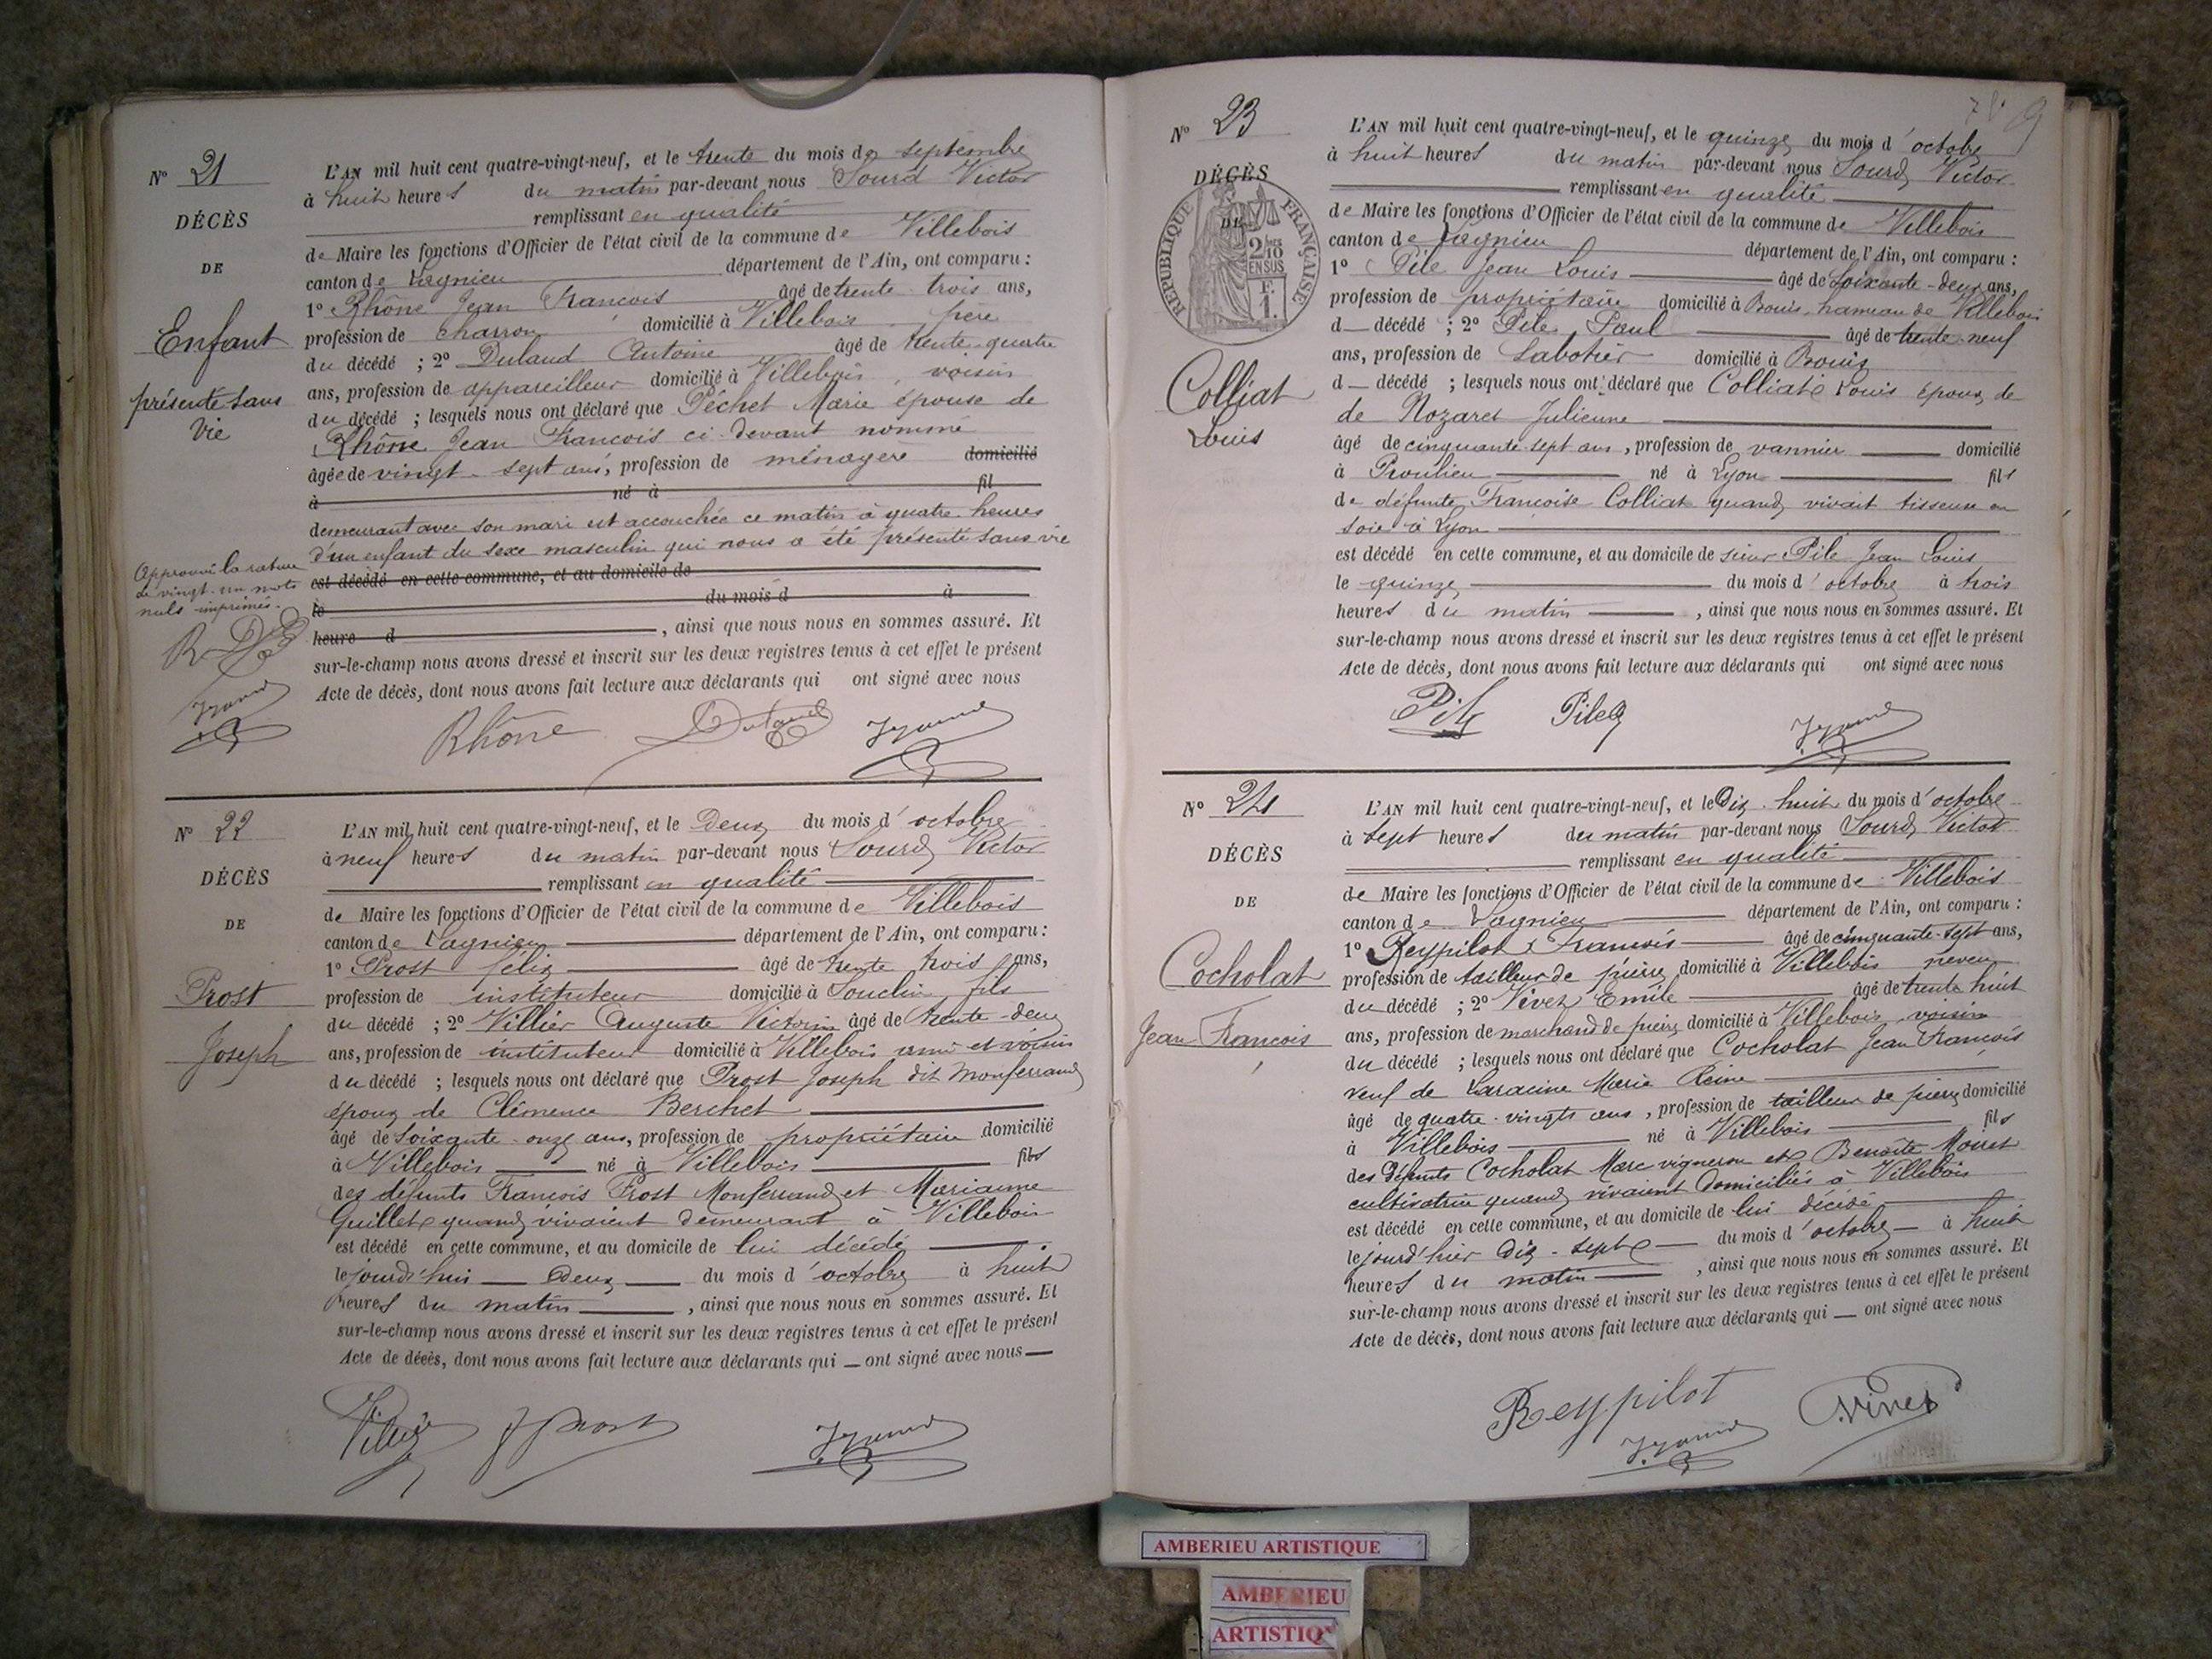 N° 21
DÉCÈS
DE
Enfant
présenté sans
vie
L'AN mil huit cent quatre-vingt-neuf, et le trente du mois de septembre
à huit heures du matin par-devant nous Sourd Victor
remplissant en qualité
de Maire les fonctions d'Officier de l'état civil de la commune de Villebois
canton de Lagnieu département de l'Ain, ont comparu :
1° Rhône Jean François âgé de trente trois ans,
profession de charron domicilié à Villebois père
du décédé ; 2° Dulaud Antoine âgé de trente-quatre
ans, profession de appareilleur domicilié à Villebois, voisin
du décédé ; lesquels nous ont déclaré que Péchet Marie épouse de
Rhône Jean François ci-devant nommé
âgée de vingt-sept ans, profession de ménagère domicilié
à né à fil
demeurant avec son mari est accouchée ce matin à quatre heures
d'un enfant du sexe masculin qui nous a été présenté sans vie
est décédé en cette commune, et au domicile de
le du mois d à
heure d , ainsi que nous nous en sommes assuré. Et
sur-le-champ nous avons dressé et inscrit sur les deux registres tenus à cet effet le présent
Acte de décès, dont nous avons fait lecture aux déclarants qui ont signé avec nous
Approuvé la rature
de vingt-un mots
nuls imprimés.
R
Rhône
N° 22
DÉCÈS
DE
Prost
Joseph
L'AN mil huit cent quatre-vingt-neuf, et le Deux du mois d'octobre
à neuf heures du matin par-devant nous Sourd Victor
remplissant en qualité
de Maire les fonctions d'Officier de l'état civil de la commune de Villebois
canton de Lagnieu département de l'Ain, ont comparu :
1° Prost félix âgé de trente trois ans,
profession de instituteur domicilié à Souclin, fils
du décédé ; 2° Villier Auguste Victorin âgé de trente-deux
ans, profession de instituteur domicilié à Villebois ami et voisin
du décédé ; lesquels nous ont déclaré que Prost Joseph dit Monferrand
époux de Clémence Berchet
âgé de soixante-onze ans, profession de propriétaire domicilié
à Villebois né à Villebois fils
des défunts François Prost Monferrand et Marianne
Guillet quand vivaient demeurant à Villebois
est décédé en cette commune, et au domicile de lui décédé
le jourd'hui Deux du mois d'octobre à huit
heures du matin , ainsi que nous nous en sommes assuré. Et
sur-le-champ nous avons dressé et inscrit sur les deux registres tenus à cet effet le présent
Acte de décès, dont nous avons fait lecture aux déclarants qui ont signé avec nous
Villier
f Prost
N° 23
DÉCÈS
DE
RÉPUBLIQUE FRANÇAISE
2/10
EN SUS
F.
1.
Colliat
Louis
L'AN mil huit cent quatre-vingt-neuf, et le quinze du mois d'octobre
à huit heures du matin par-devant nous Sourd Victor
remplissant en qualité
de Maire les fonctions d'Officier de l'état civil de la commune de Villebois
canton de Lagnieu département de l'Ain, ont comparu :
1° Pile Jean Louis âgé de soixante-deux ans,
profession de propriétaire domicilié à Bouis, hameau de Villebois
d décédé ; 2° Pile Paul âgé de trente-neuf
ans, profession de Sabotier domicilié à Bouis
d décédé ; lesquels nous ont déclaré que Colliat Louis époux de
de Nozaret Julienne
âgé de cinquante sept ans, profession de vannier domicilié
à Proulieu né à Lyon fils
de défunte Françoise Colliat quand vivait tisseuse en
soie à Lyon
est décédé en cette commune, et au domicile de sieur Pile Jean Louis
le quinze du mois d'octobre à trois
heures du matin , ainsi que nous nous en sommes assuré. Et
sur-le-champ nous avons dressé et inscrit sur les deux registres tenus à cet effet le présent
Acte de décès, dont nous avons fait lecture aux déclarants qui ont signé avec nous
Pile Pile
N° 24
DÉCÈS
DE
Cocholat
Jean François
L'AN mil huit cent quatre-vingt-neuf, et le Dix-huit du mois d'octobre
à sept heures du matin par-devant nous Sourd Victor
remplissant en qualité
de Maire les fonctions d'Officier de l'état civil de la commune de Villebois
canton de Lagnieu département de l'Ain, ont comparu :
1° Reypilot François âgé de cinquante-sept ans,
profession de tailleur de pierre domicilié à Villebois neveu
du décédé ; 2° Vivet Emile âgé de trente huit
ans, profession de marchand de pierre domicilié à Villebois, voisin
du décédé ; lesquels nous ont déclaré que Cocholat Jean François
veuf de Laracine Marie Reine
âgé de quatre-vingts ans, profession de tailleur de pierre domicilié
à Villebois né à Villebois fils
des défunts Cocholat Marc vigneron et Benoîte Moiret
cultivatrice quand vivaient domiciliés à Villebois
est décédé en cette commune, et au domicile de lui décédé
le jourd'hier Dix-sept du mois d'octobre à huit
heures du matin , ainsi que nous nous en sommes assuré. Et
sur-le-champ nous avons dressé et inscrit sur les deux registres tenus à cet effet le présent
Acte de décès, dont nous avons fait lecture aux déclarants qui ont signé avec nous
Reypilot
Vivet
AMBERIEU ARTISTIQUE
AMBERIEU
ARTISTIQ